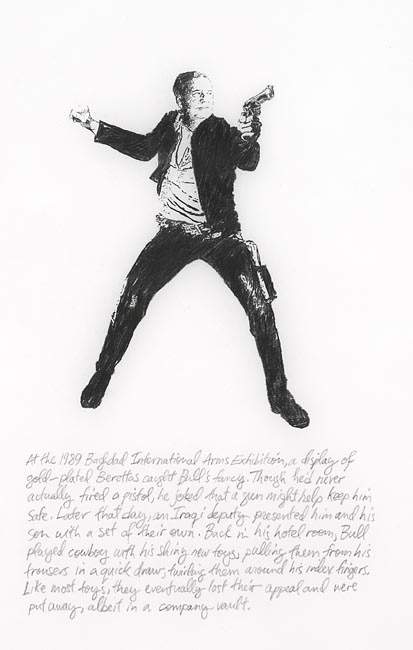 At the 1989 Baghdad International Arms Exhibition, a display of
gold-plated Berettas caught Bull's fancy. Though he'd never
actually fired a pistol, he joked that a gun might help keep him
safe. Later that day, an Iraqi deputy presented him and his
son with a set of their own. Back in his hotel room, Bull
played cowboy with his shiny new toys, pulling them from his
trousers in a quick draw, twirling them around his index fingers.
Like most toys, they eventually lost their appeal and were
put away, albeit in a company vault.